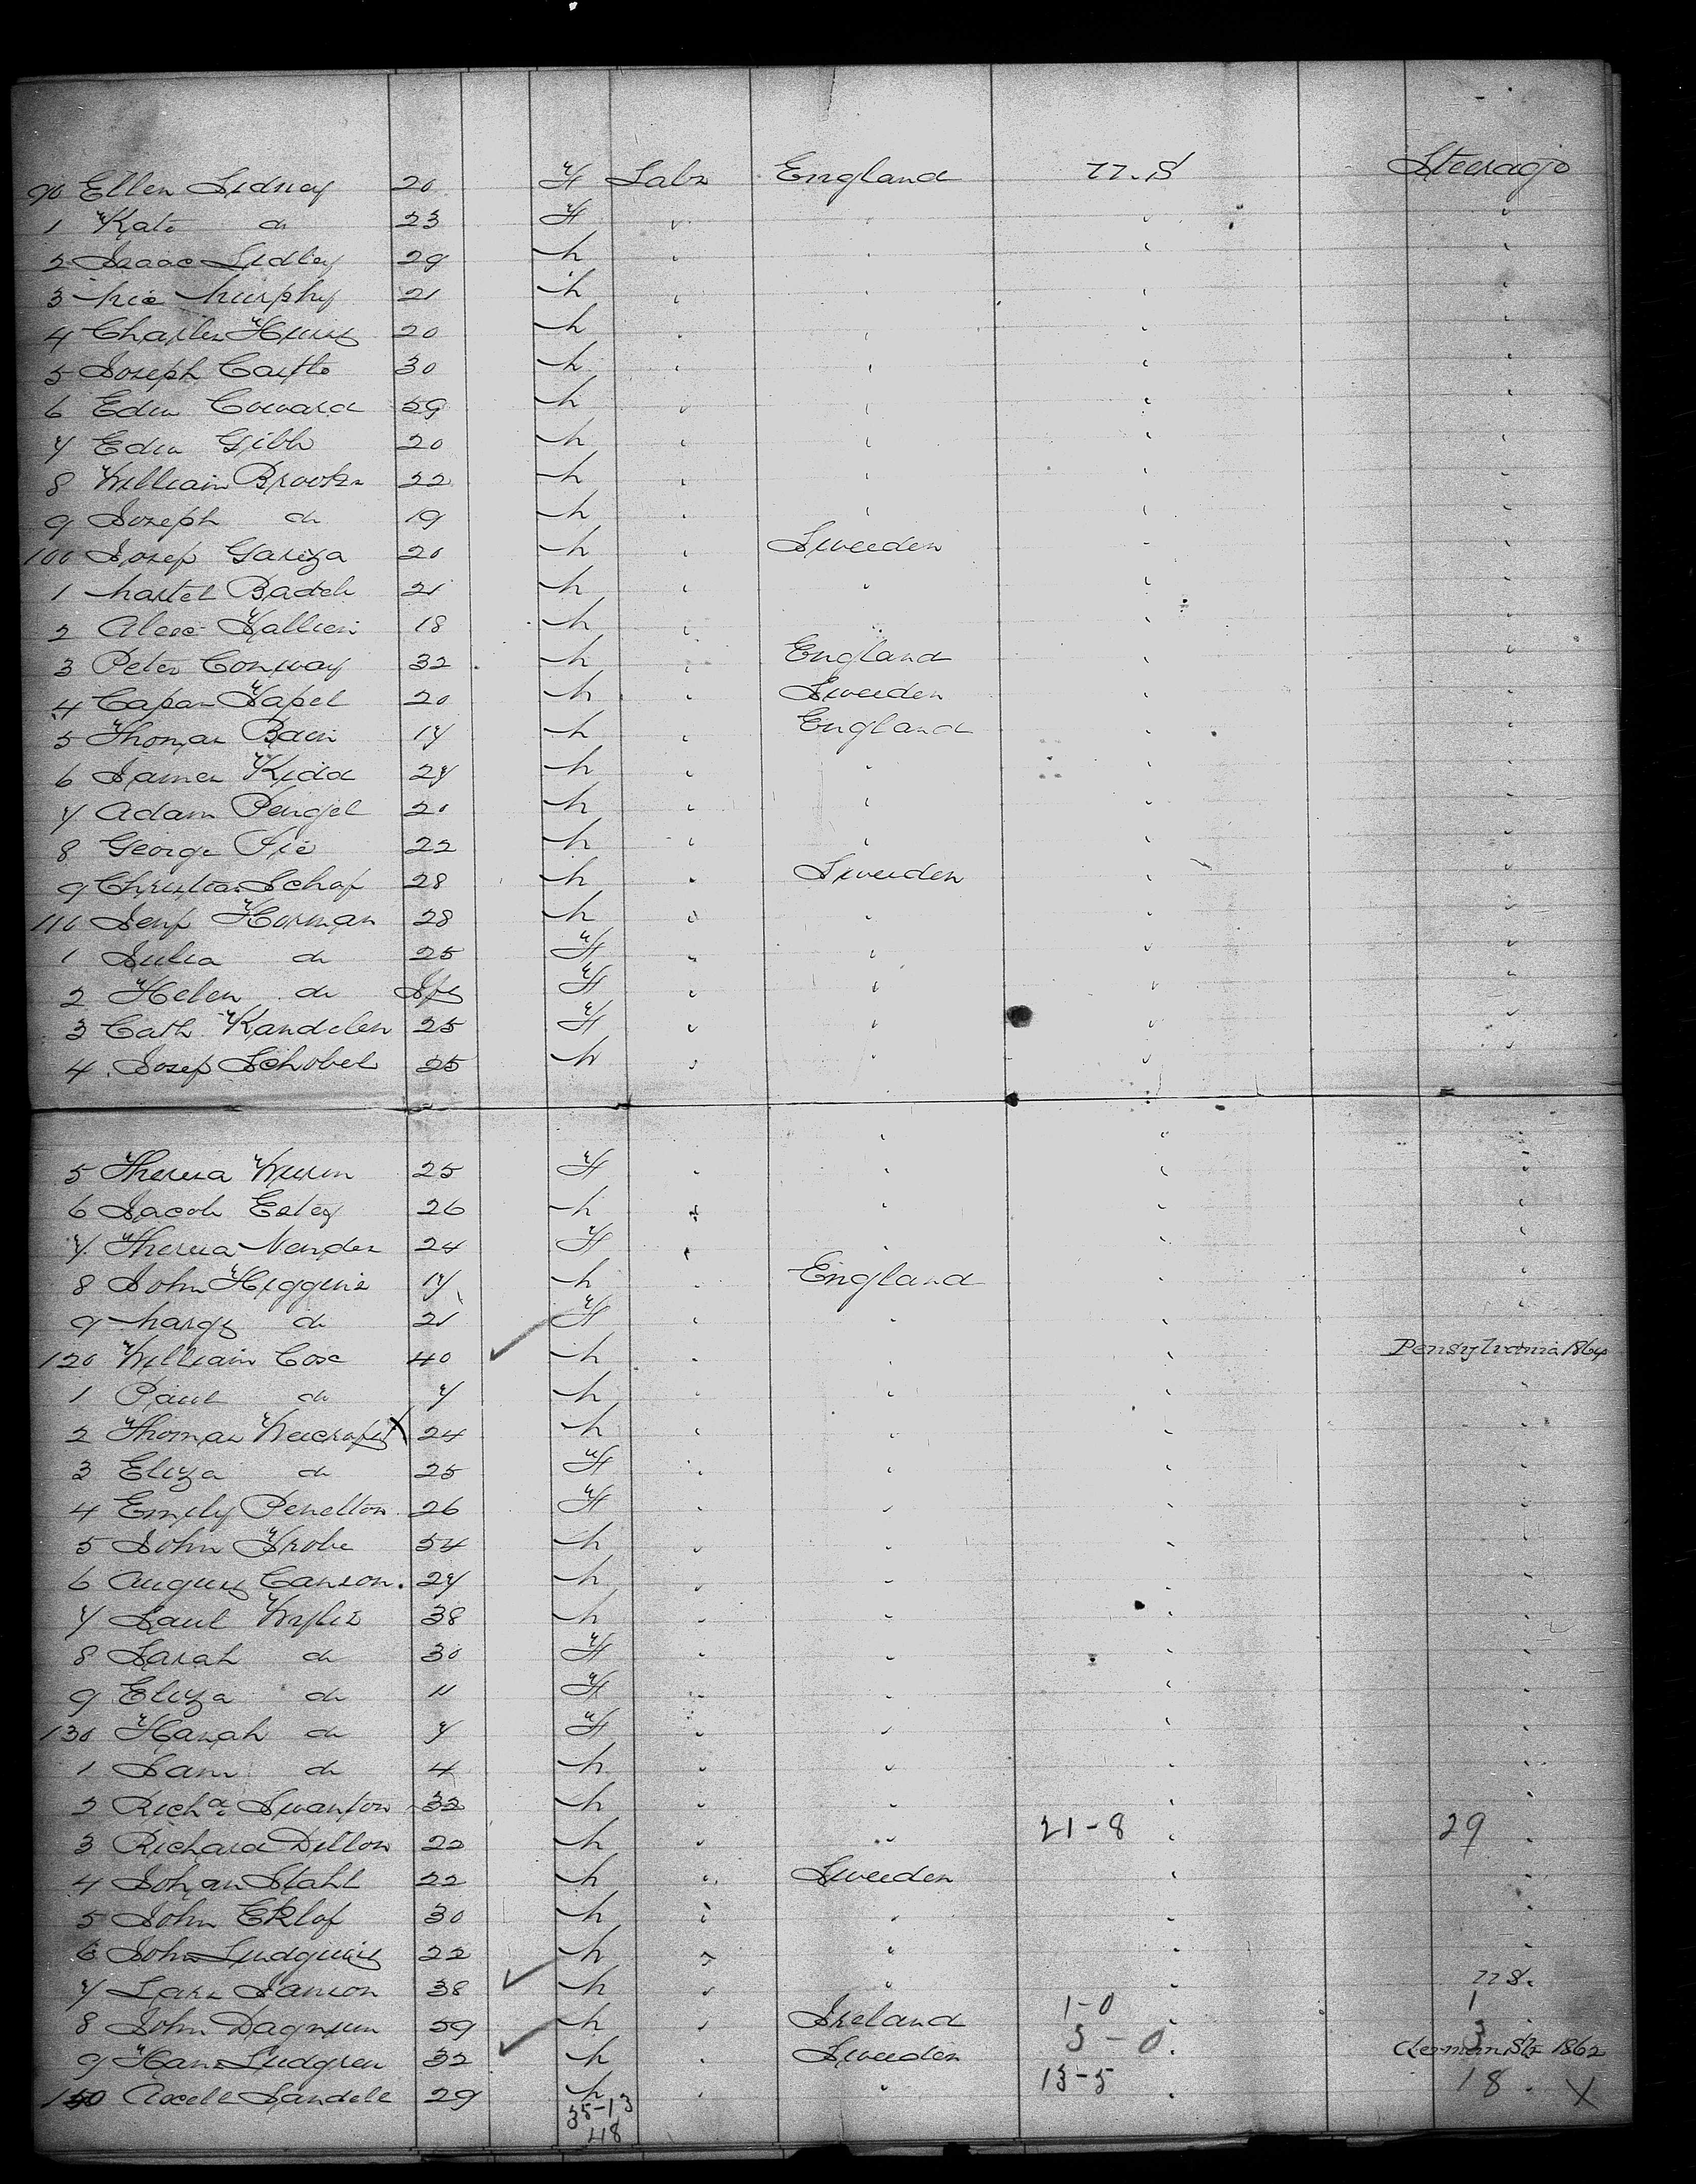 90 Ellen Sidney 20 F Labr England U.S Steerage
1 Kate do 23 F " " " "
2 Isaac Sidley 29 M " " " "
3 Mic Murphy 21 M " " " "
4 Charles Henry 20 M " " " "
5 Joseph Castle 30 M " " " "
6 Edw Coward 59 M " " " "
7 Edw Gibb 20 M " " " "
8 William Brooks 22 M " " " "
9 Joseph do 19 M " " " "
100 Josep Gariza 20 M " Sweeden " "
1 Martel Badeh 21 M " " " "
2 Alexe Kallien 18 M " " " "
3 Peter Conway 32 M " England " "
4 Capar Tapel 20 M " Sweeden " "
5 Thomas Bain 17 M " England " "
6 James Kidd 27 M " " " "
7 Adam Pengel 20 M " " " "
8 George Pie 22 M " " " "
9 Christian Schaf 28 M " Sweeden " "
110 Jenp Horman 28 M " " " "
1 Julia do 25 F " " " "
2 Helen do Inf F " " " "
3 Cath Kandelen 25 F " " " "
4 Josep Schobel 25 M " " " "
5 Theresa Wurm 25 F " " " "
6 Jacob Estey 26 M " " " "
7 Theresa Vender 24 F " " " "
8 John Higgins 17 M " England " "
9 Margt do 21 F " " " "
120 William Cox 40 M " " " Pensylvania 1864
1 Paul do 7 M " " " "
2 Thomas 24 M " " " "
3 Eliza do 25 F " " " "
4 Emily Penelton 26 F " " " "
5 John Frobe 54 M " " " "
6 August Canson 27 M " " " "
7 Saul Wylie 38 M " " " "
8 Sarah do 30 F " " " "
9 Eliza do 11 F " " " "
130 Hanah do 7 F " " " "
1 Sam do 4 M " " " "
2 Richd Swanton 32 M " " " "
3 Richard Dillon 22 M " " 21-8 " 29 "
4 Johan Stahl 22 M " Sweeden " "
5 John Eklof 30 M " " " "
6 John Lindquist 22 M " " " "
7 Lars Janson 38 M " " " U S.
8 John Dagneun 59 M " Ireland 1-0 " 1
9 Hans Lindgren 32 M " Sweeden 3-0 " 3 1862
140 Axell Sandell 29 M " " 13-5 " 18 X
35-13
48